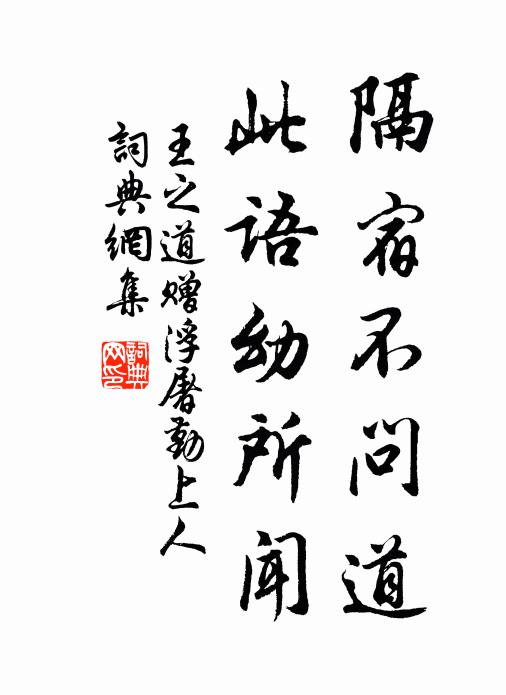 隔宿不问道
此语幼所闻
王之道赠浮屠勤上人
詞典網集
詞典
网印